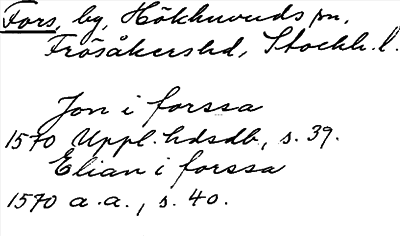 Fors, by, Hökhuvuds sn,
Frösåkers hd, Stockh. l.
Jon i forssa
1570 Uppl. hdsdb, s. 39.
Elian i forssa
1570 a.a., s. 40.